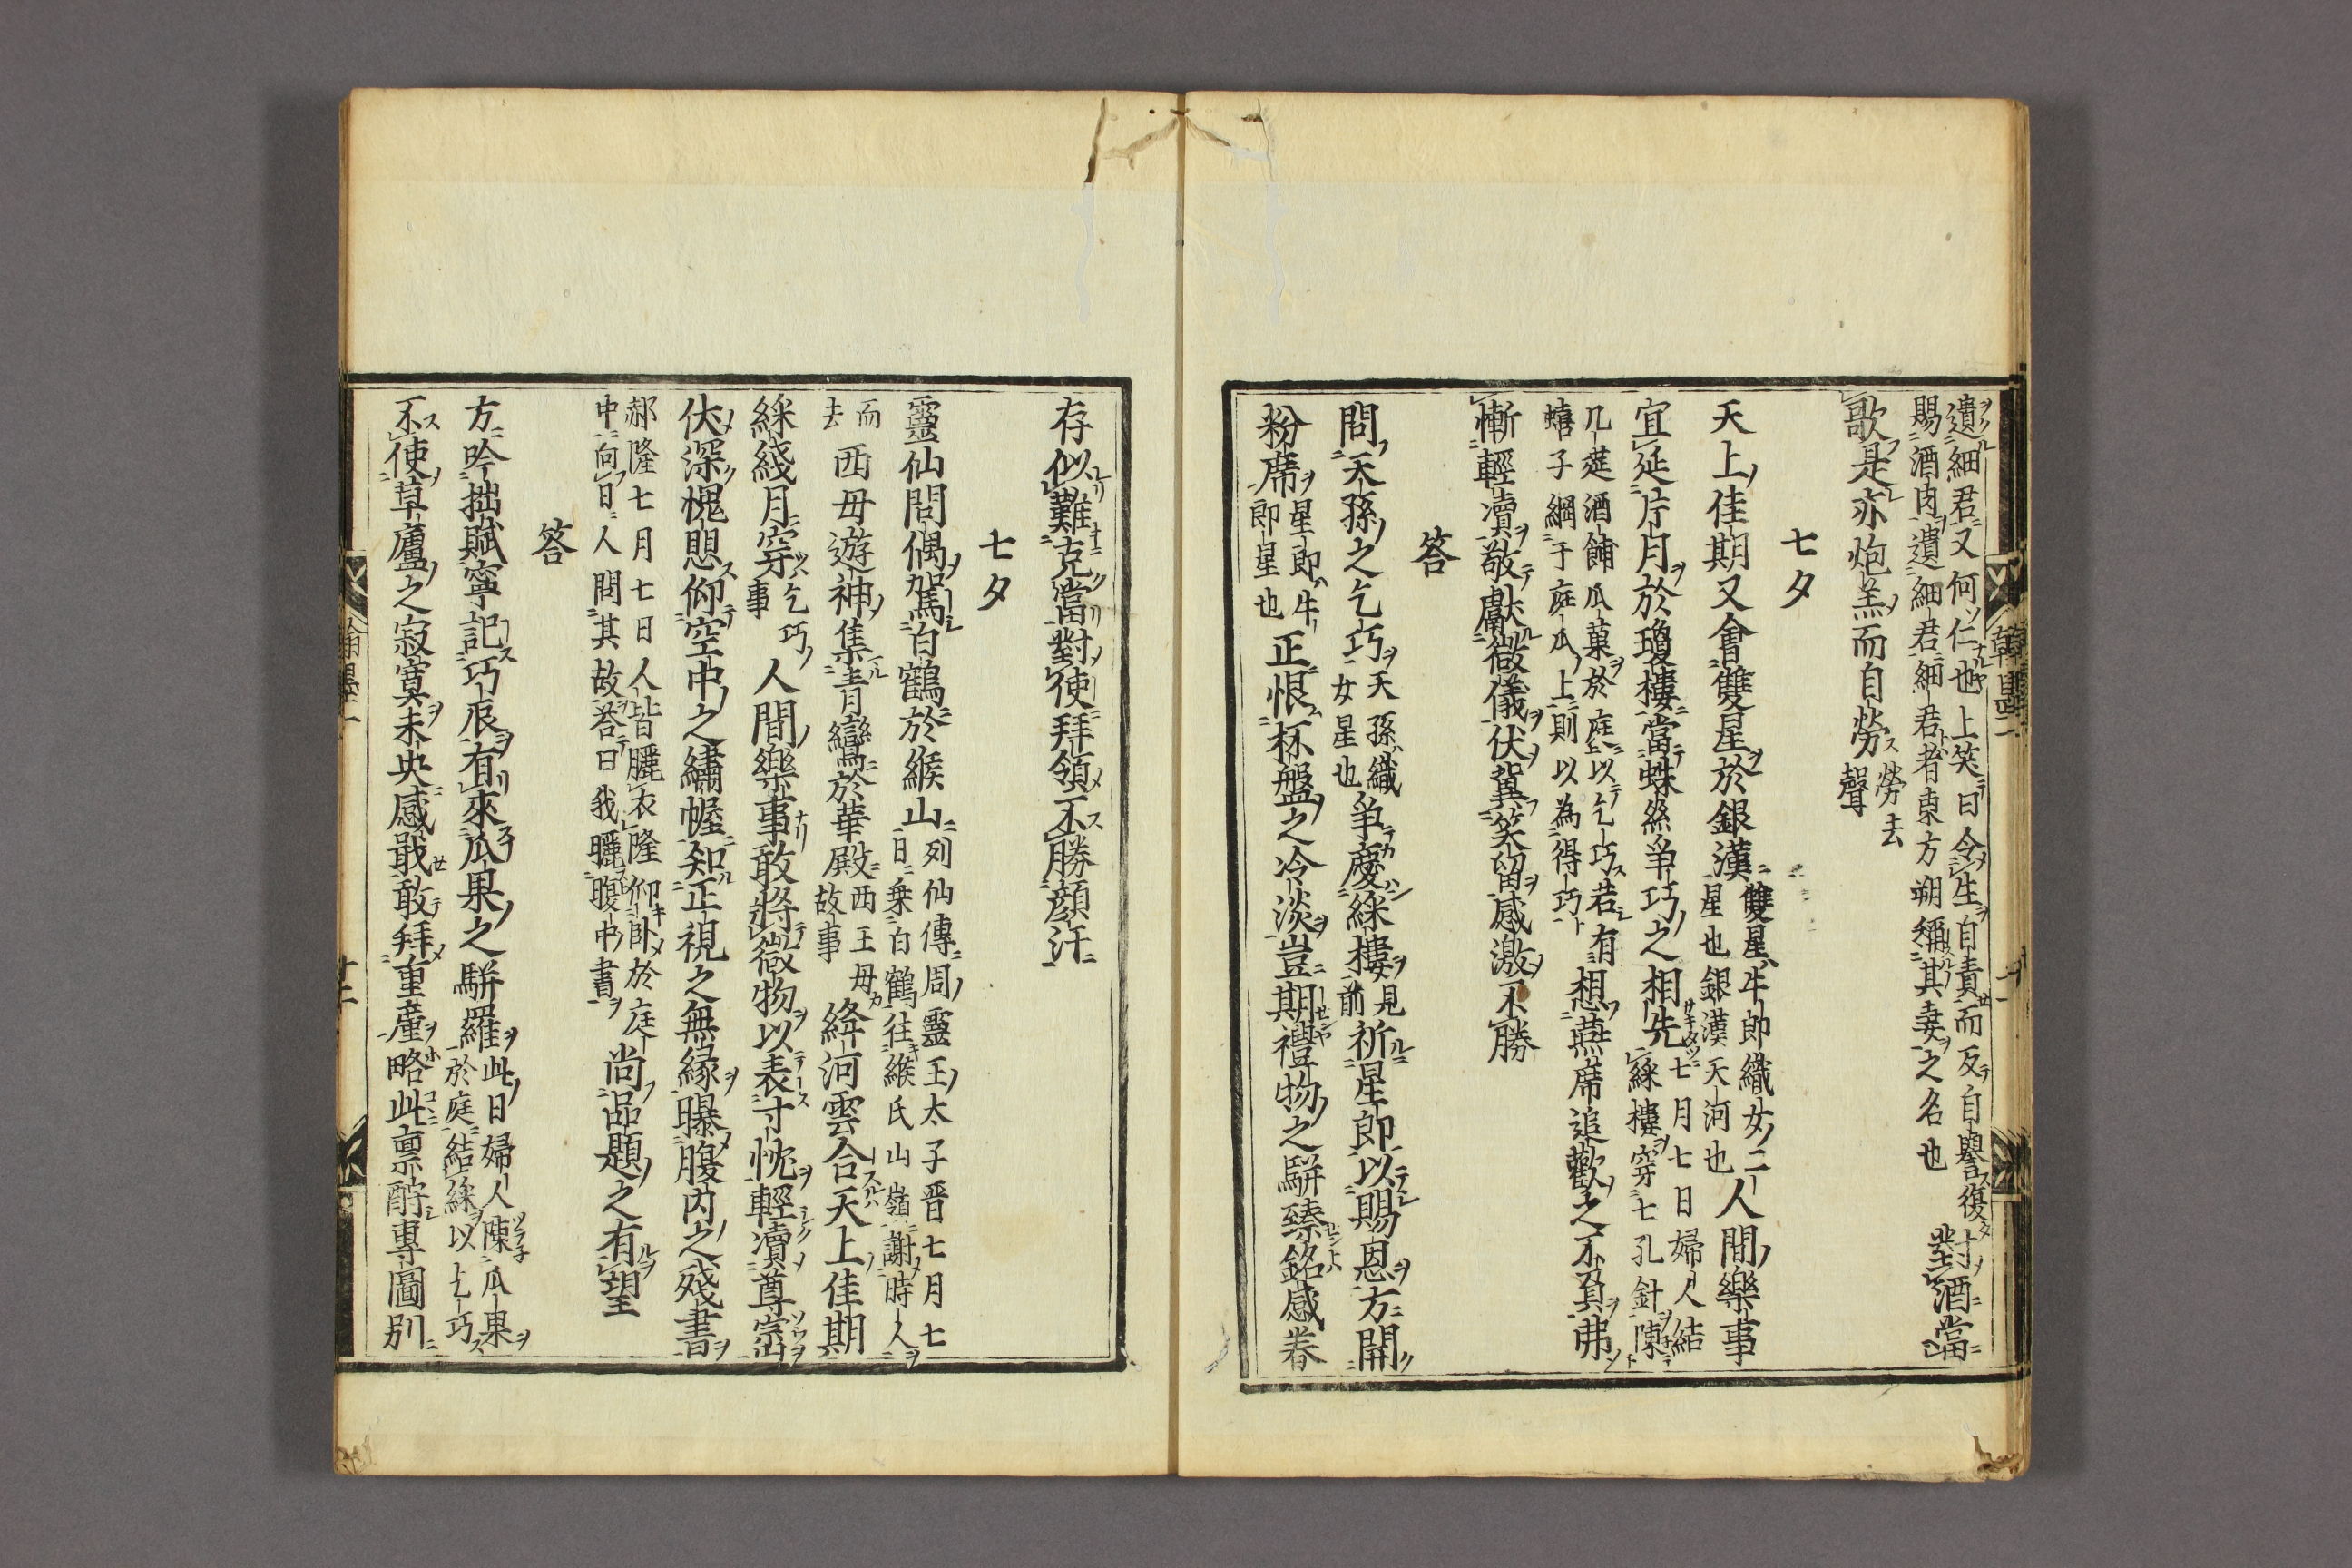 遺細君又何仁也上笑曰令生自責而反自譽復
賜酒肉遺細君細君者東方朔稱其妻之名也
對酒當
歌是亦炮羔而自勞
勞去
聲
七夕
天上佳期又會雙星於銀漢
雙星牛郎織女二
星也銀漢天河也
人間樂事
宜延片月於瓊樓當蛛絲爭巧之相先
七月七日婦人結
綵樓穿七孔針陳
几筵酒餔瓜菓於庭以乞巧若有
蟢子網于庭瓜上則以為得巧
想燕席追歡之不負弗
慚輕瀆敬獻微儀伏冀笑留感激不勝
答
問天孫之乞巧
天孫織
女星也
爭慶綵樓
見
前
祈星郎以賜恩方開
粉席
星郎牛
郎星也
正恨杯盤之冷淡豈期禮物之駢臻銘感眷
存似難克當對使拜領不勝顔汗
七夕
靈仙問偶駕白鶴於緱山
列仙傳周靈王太子晉七月七
日乗白鶴往緱氏山嶺謝時人
而
去
西毋遊神集青鸞於華殿
西王毋
故事
絳河雲合天上佳期
綵綫月穿
乞巧
事
人間樂事敢將微物以表寸忱輕瀆尊崇
伏深愧思仰空中之繡幄知正視之無縁曝腹内之殘書
郝隆七月七日人皆曬衣隆仰卧於庭
中向日人問其故荅曰我曬腹中書
尚品題之有望
答
方吟拙賦寧記巧辰有來瓜果之駢羅
此日婦人陳瓜果
於庭結綵以乞巧
不使草廬之寂寞未央感戢敢拜重産略此禀酧專圖别